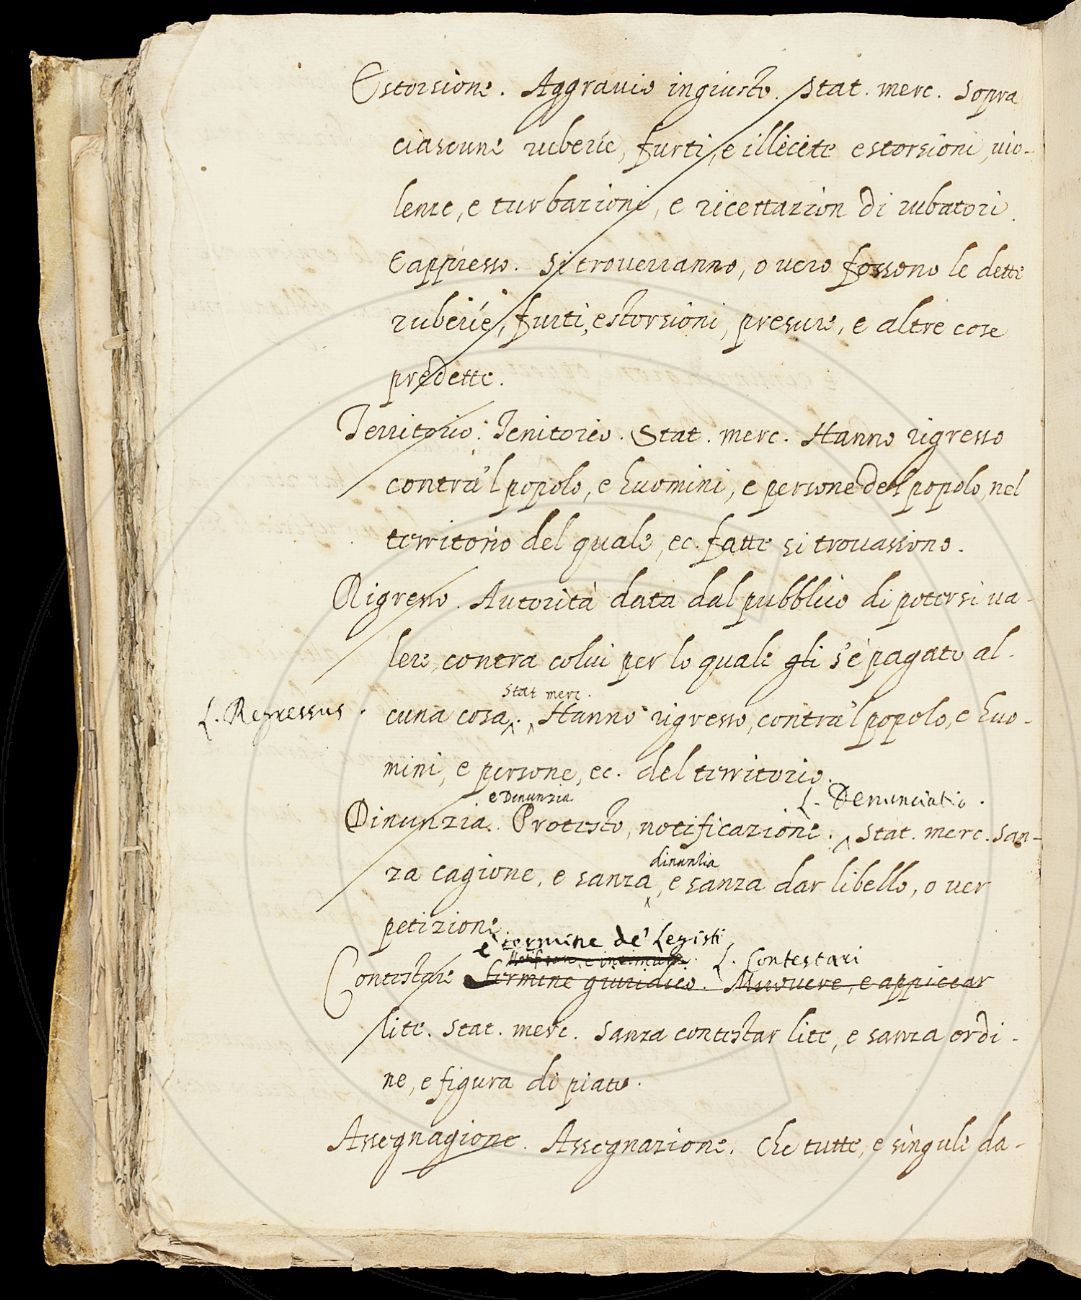 Estorsione. Aggravio ingiusto. Stat. merc. Sopra
ciascune ruberie, furti, e illicite estorsioni, vio-
lenze, e turbazioni, e ricettazion di rubatori.
E appresso. Si troverranno, o vero fossono le dette
ruberie, furti, estorsioni, presure, e altre cose
predette.
Territorio. Tenitorio. Stat. merc. Hanno rigresso
contra 'l popolo, e huomini, e persone del popolo, nel
territorio del quale, ec. fatte si trovassono.
Rigresso. Autorità data dal pubblico di potersi va-
lere, contra colui per lo quale gli s'è pagato al-
stat. merc.
L. Regressus. cuna cosa. Hanno rigresso, contra 'l popolo, e huo-
mini, e persone, ec. del territorio.
e Denunzia L. Denunciatio.
Dinunzia. Protesto, notificazione. Stat. merc. san-
dinunzia
za cagione, e sanza, e sanza dar libello, o ver
petizione.
è termine de' Legisti
L. Contestari
Contestare termine giuridico. Muovere, e appiccar
lite. Stat. merc. Sanza contestar lite, e sanza ordi-
ne, e figura di piato.
Assegnagione. Assegnazione. Che tutte, e singule da-